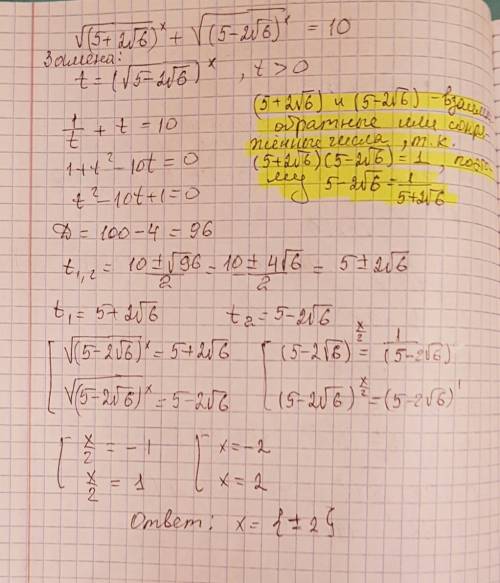 √(5+2√6)^x + √(5-2√6)^x = 10
Замена:
t = (√5-2√6)^x, t > 0
(5+2√6) и (5-2√6) - взаимно
обратные или сопря-
жённые числа, т.к.
(5+2√6)(5-2√6) = 1, поэто-
му 5-2√6 = 1/(5+2√6)
1/t + t = 10
1+t²-10t=0
t²-10t+1=0
D = 100-4 = 96
t₁,₂ = (10±√96)/2 = (10±4√6)/2 = 5±2√6
t₁ = 5+2√6 t₂ = 5-2√6
[ √(5-2√6)^x = 5+2√6 [ (5-2√6)^(x/2) = 1/(5-2√6)
√(5-2√6)^x = 5-2√6 (5-2√6)^(x/2) = (5-2√6)^1
[ x/2 = -1 [ x=-2
x/2 = 1 x = 2
Ответ: x = {±2}